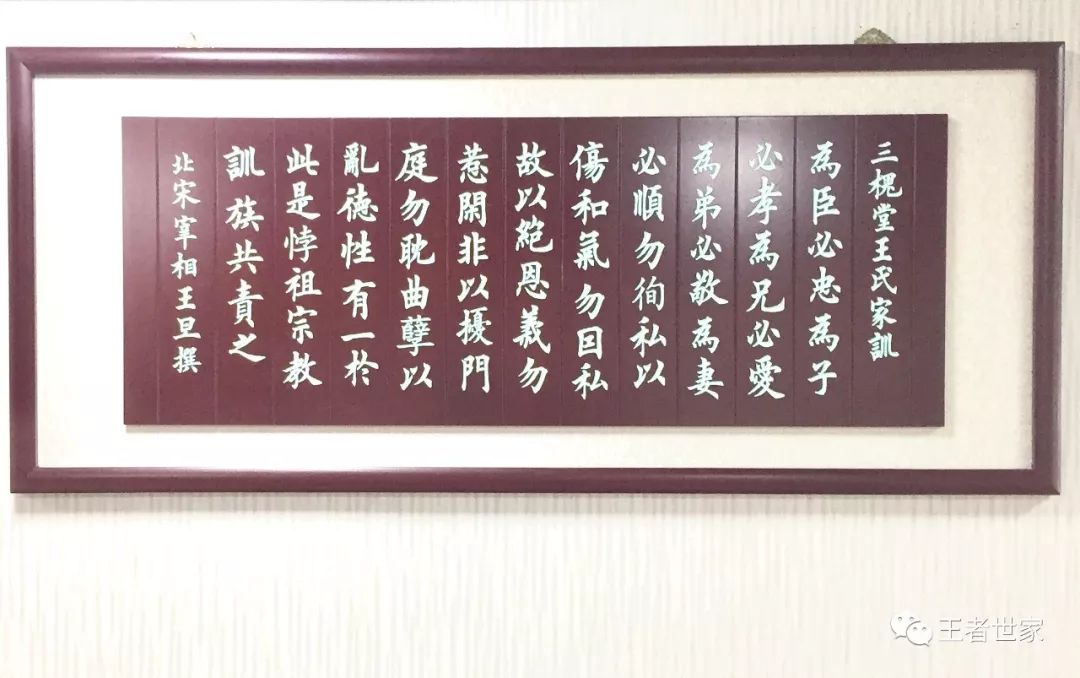 三槐堂王氏家訓
為臣必忠為子
必孝為兄必愛
為弟必敬為妻
必順勿徇私以
傷和氣勿因私
故以絕恩義勿
惹閑非以擾門
庭勿耽曲孽以
亂德性有一於
此是悖祖宗教
訓族共責之
北宋宰相王旦撰
王者世家